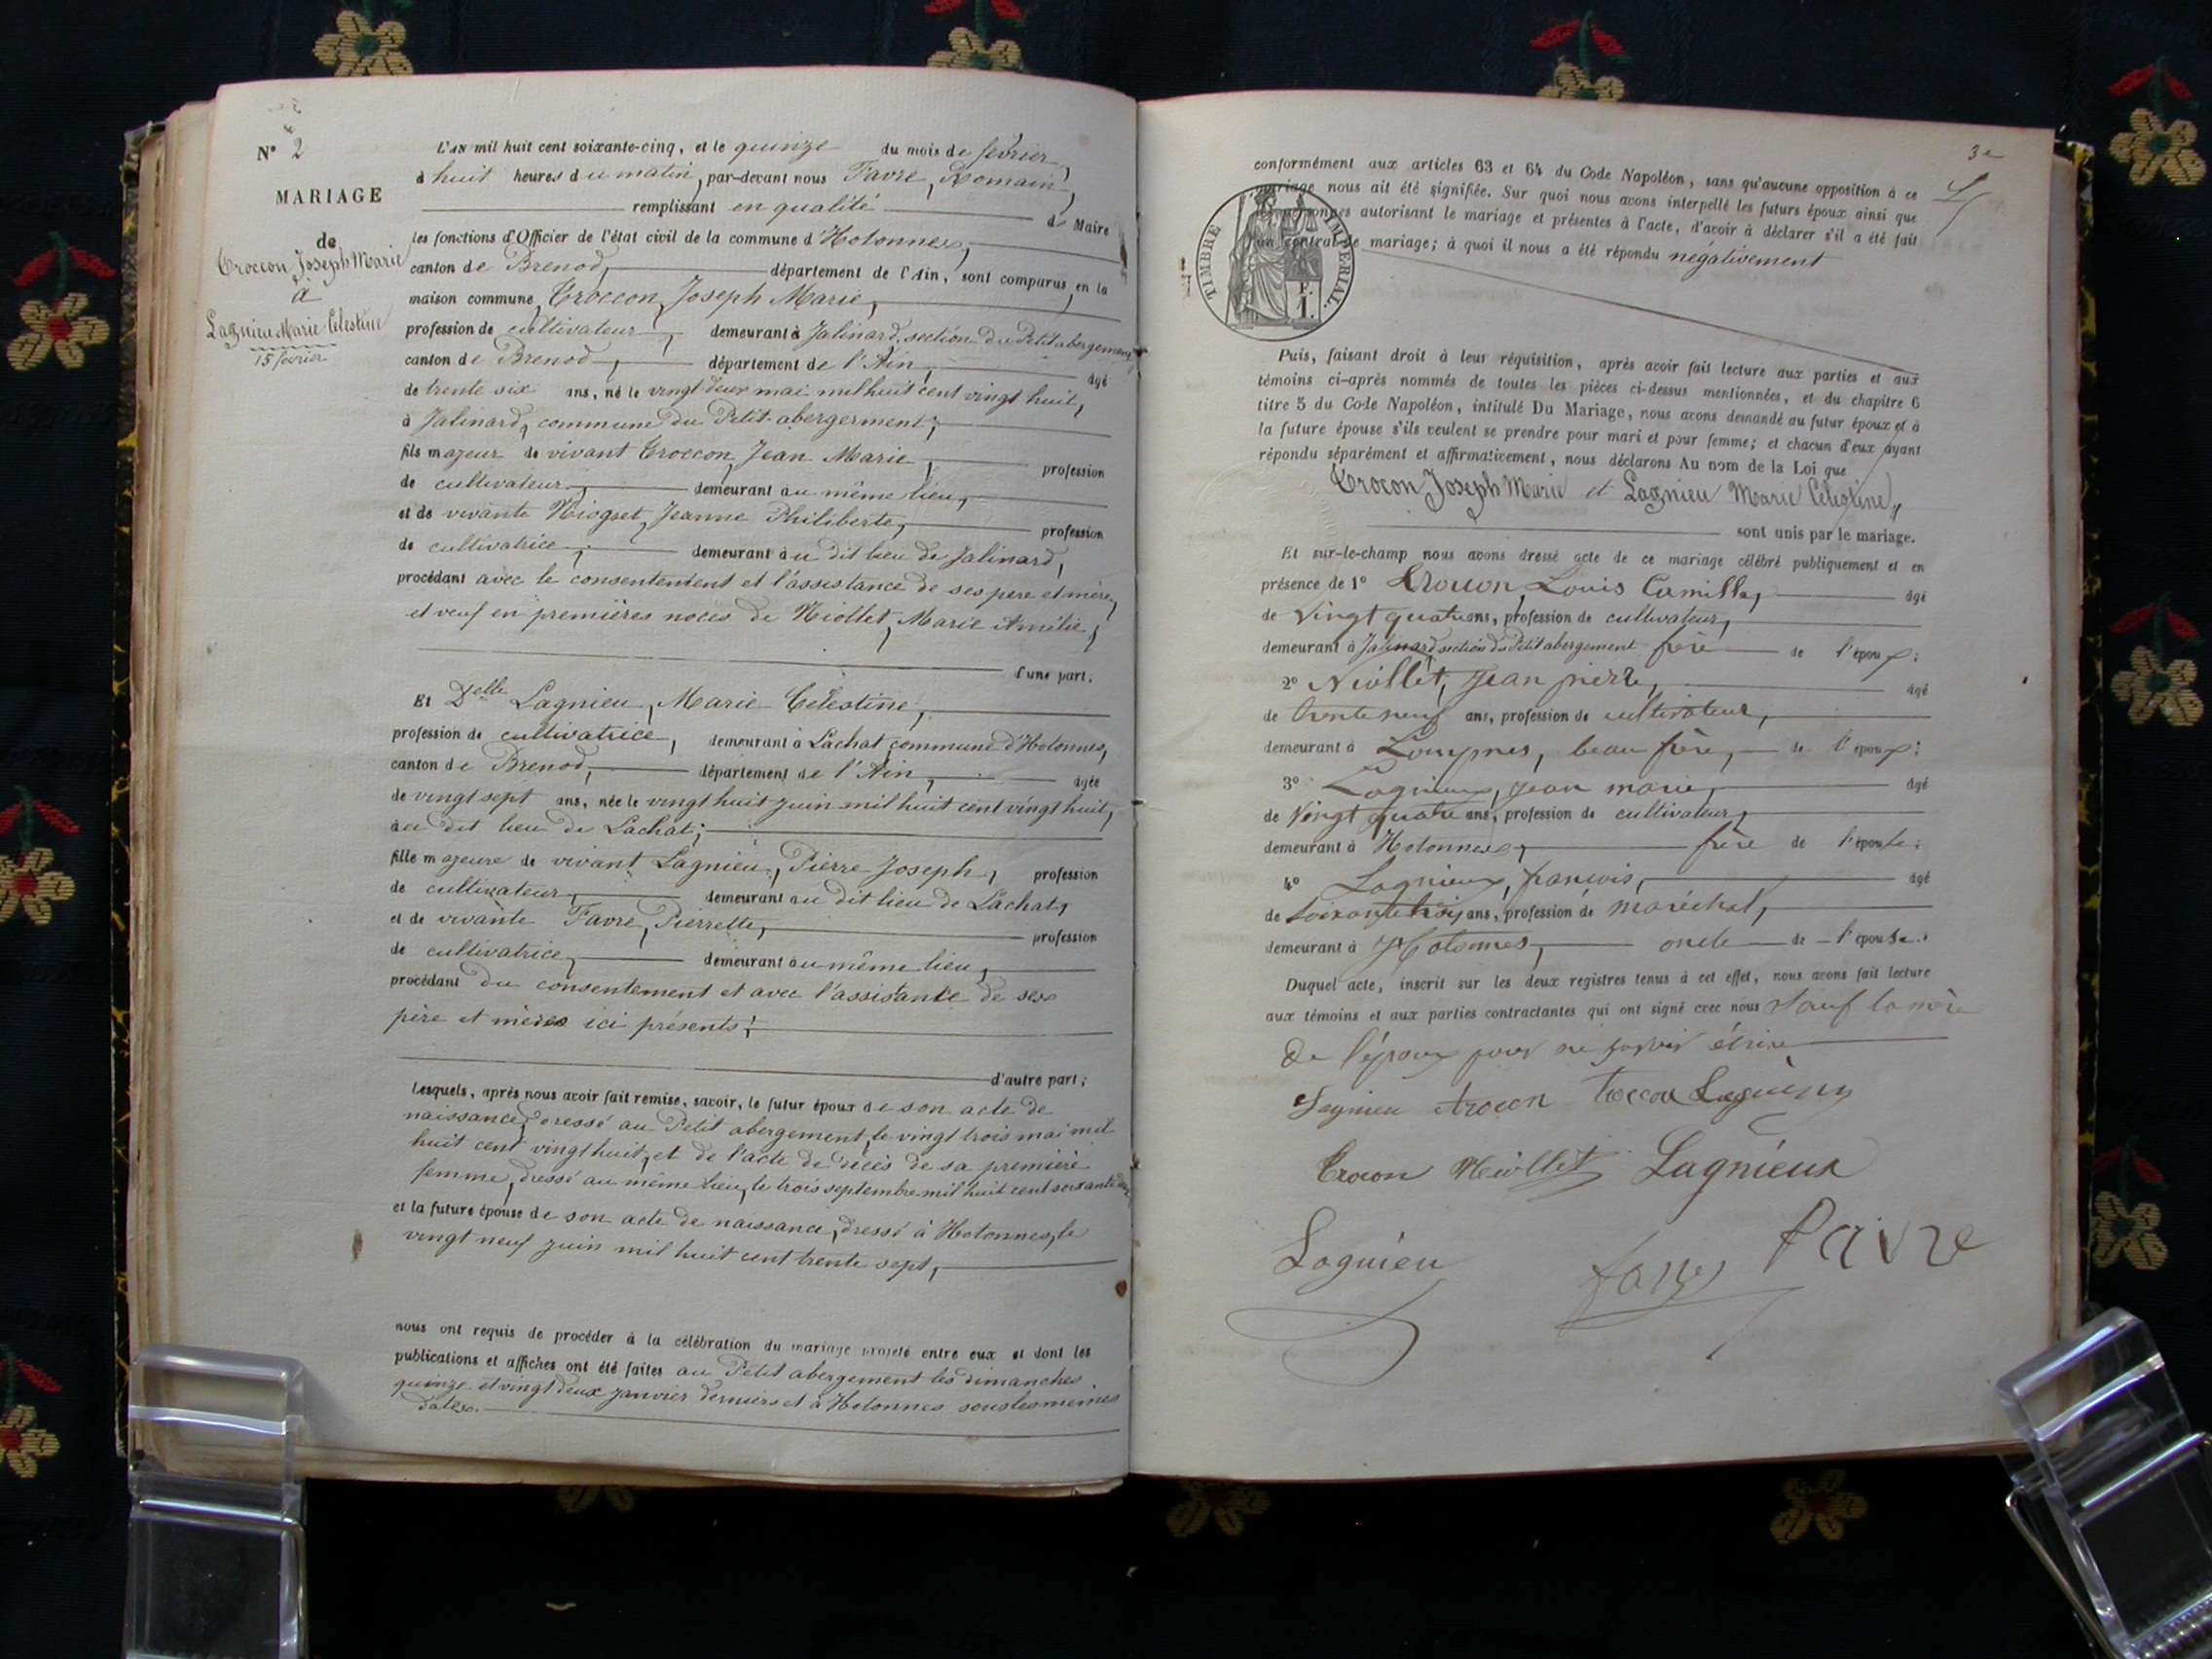 N° 2
MARIAGE
de
Troccon Joseph Marie
à
Lagnieu Marie Célestine
15 février
L'AN mil huit cent soixante-cinq, et le quinze du mois de février,
à huit heures du matin, par-devant nous Favre, Romain,
remplissant en qualité de Maire
les fonctions d'Officier de l'état civil de la commune d'Hotonnes,
canton de Brenod, département de l'Ain, sont comparus en la
maison commune, Troccon, Joseph Marie,
profession de cultivateur, demeurant à Jalinard, section du Petit abergement,
canton de Brenod, département de l'Ain, âgé
de trente six ans, né le vingt deux mai mil huit cent vingt huit,
à Jalinard, commune du Petit-abergement,
fils majeur de vivant Troccon, Jean Marie, profession
de cultivateur, demeurant au même lieu,
et de vivante Niogret, Jeanne Philiberte, profession
de cultivatrice, demeurant au dit lieu de Jalinard,
procédant avec le consentement et l'assistance de ses père et mère,
et veuf en premières noces de Niollet, Marie Amélie,
d'une part.
Et Delle Lagnieu, Marie Célestine,
profession de cultivatrice, demeurant à Lachat commune d'Hotonnes,
canton de Brenod, département de l'Ain, âgée
de vingt sept ans, née le vingt huit juin mil huit cent vingt huit,
au dit lieu de Lachat;
fille majeure de vivant Lagnieu, Pierre Joseph, profession
de cultivateur, demeurant au dit lieu de Lachat,
et de vivante Favre, Pierrette, profession
de cultivatrice, demeurant au même lieu,
procédant du consentement et avec l'assistance de ses
père et mère ici présents;
d'autre part;
Lesquels, après nous avoir fait remise, savoir, le futur époux de son acte de
naissance, dressé au Petit abergement, le vingt trois mai mil
huit cent vingt huit, et de l'acte de décès de sa première
femme, dressé au même lieu, le trois septembre mil huit cent soixante
et la future épouse de son acte de naissance, dressé à Hotonnes, le
vingt neuf juin mil huit cent trente sept,
nous ont requis de procéder à la célébration du mariage projeté entre eux et dont les
publications et affiches ont été faites au Petit abergement les dimanches
quinze et vingt deux janvier derniers et à Hotonnes sous les mêmes
dates.
3e
conformément aux articles 63 et 64 du Code Napoléon, sans qu'aucune opposition à ce
mariage nous ait été signifiée. Sur quoi nous avons interpellé les futurs époux ainsi que
personnes autorisant le mariage et présentes à l'acte, d'avoir à déclarer s'il a été fait
un contrat de mariage; à quoi il nous a été répondu négativement
TIMBRE IMPERIAL.
F.
1.
Puis, faisant droit à leur réquisition, après avoir fait lecture aux parties et aux
témoins ci-après nommés de toutes les pièces ci-dessus mentionnées, et du chapitre 6
titre 5 du Code Napoléon, intitulé Du Mariage, nous avons demandé au futur époux et à
la future épouse s'ils veulent se prendre pour mari et pour femme; et chacun d'eux ayant
répondu séparément et affirmativement, nous déclarons Au nom de la Loi que
Trocon Joseph Marie et Lagnieu Marie Célestine,
sont unis par le mariage.
Et sur-le-champ nous avons dressé acte de ce mariage célébré publiquement et en
présence de 1° Trocon, Louis Camille, âgé
de Vingt quatre ans, profession de cultivateur,
demeurant à Jalinard section du Petit abergement frère de l'époux;
2° Niollet, Jean pierre, âgé
de trente neuf ans, profession de cultivateur,
demeurant à Lompnes, beau frère, de l'époux;
3° Lagnieux, jean marie, âgé
de Vingt quatre ans, profession de cultivateur,
demeurant à Hotonnes, frère de l'épouse;
4° Lagnieux, francois, âgé
de Soixante trois ans, profession de maréchal,
demeurant à Hotonnes, oncle de l'épouse.
Duquel acte, inscrit sur les deux registres tenus à cet effet, nous avons fait lecture
aux témoins et aux parties contractantes qui ont signé avec nous Sauf la mère
de l'époux pour ne savoir écrire
Lagnieu trocon troccon Lagnieu
Trocon Niollet Lagnieux
Lagnieu favre favre